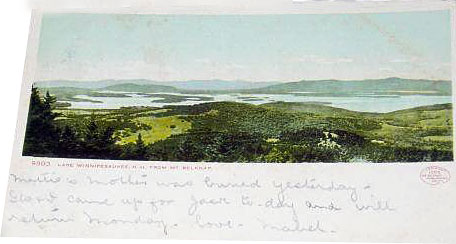 6903. LAKE WINNIPESAUKEE, N. H., FROM MT BELKNAP.
Mattie's Mother was buried yesterday -
came up for Jack to-day and will
return Monday. Love - Mabel.